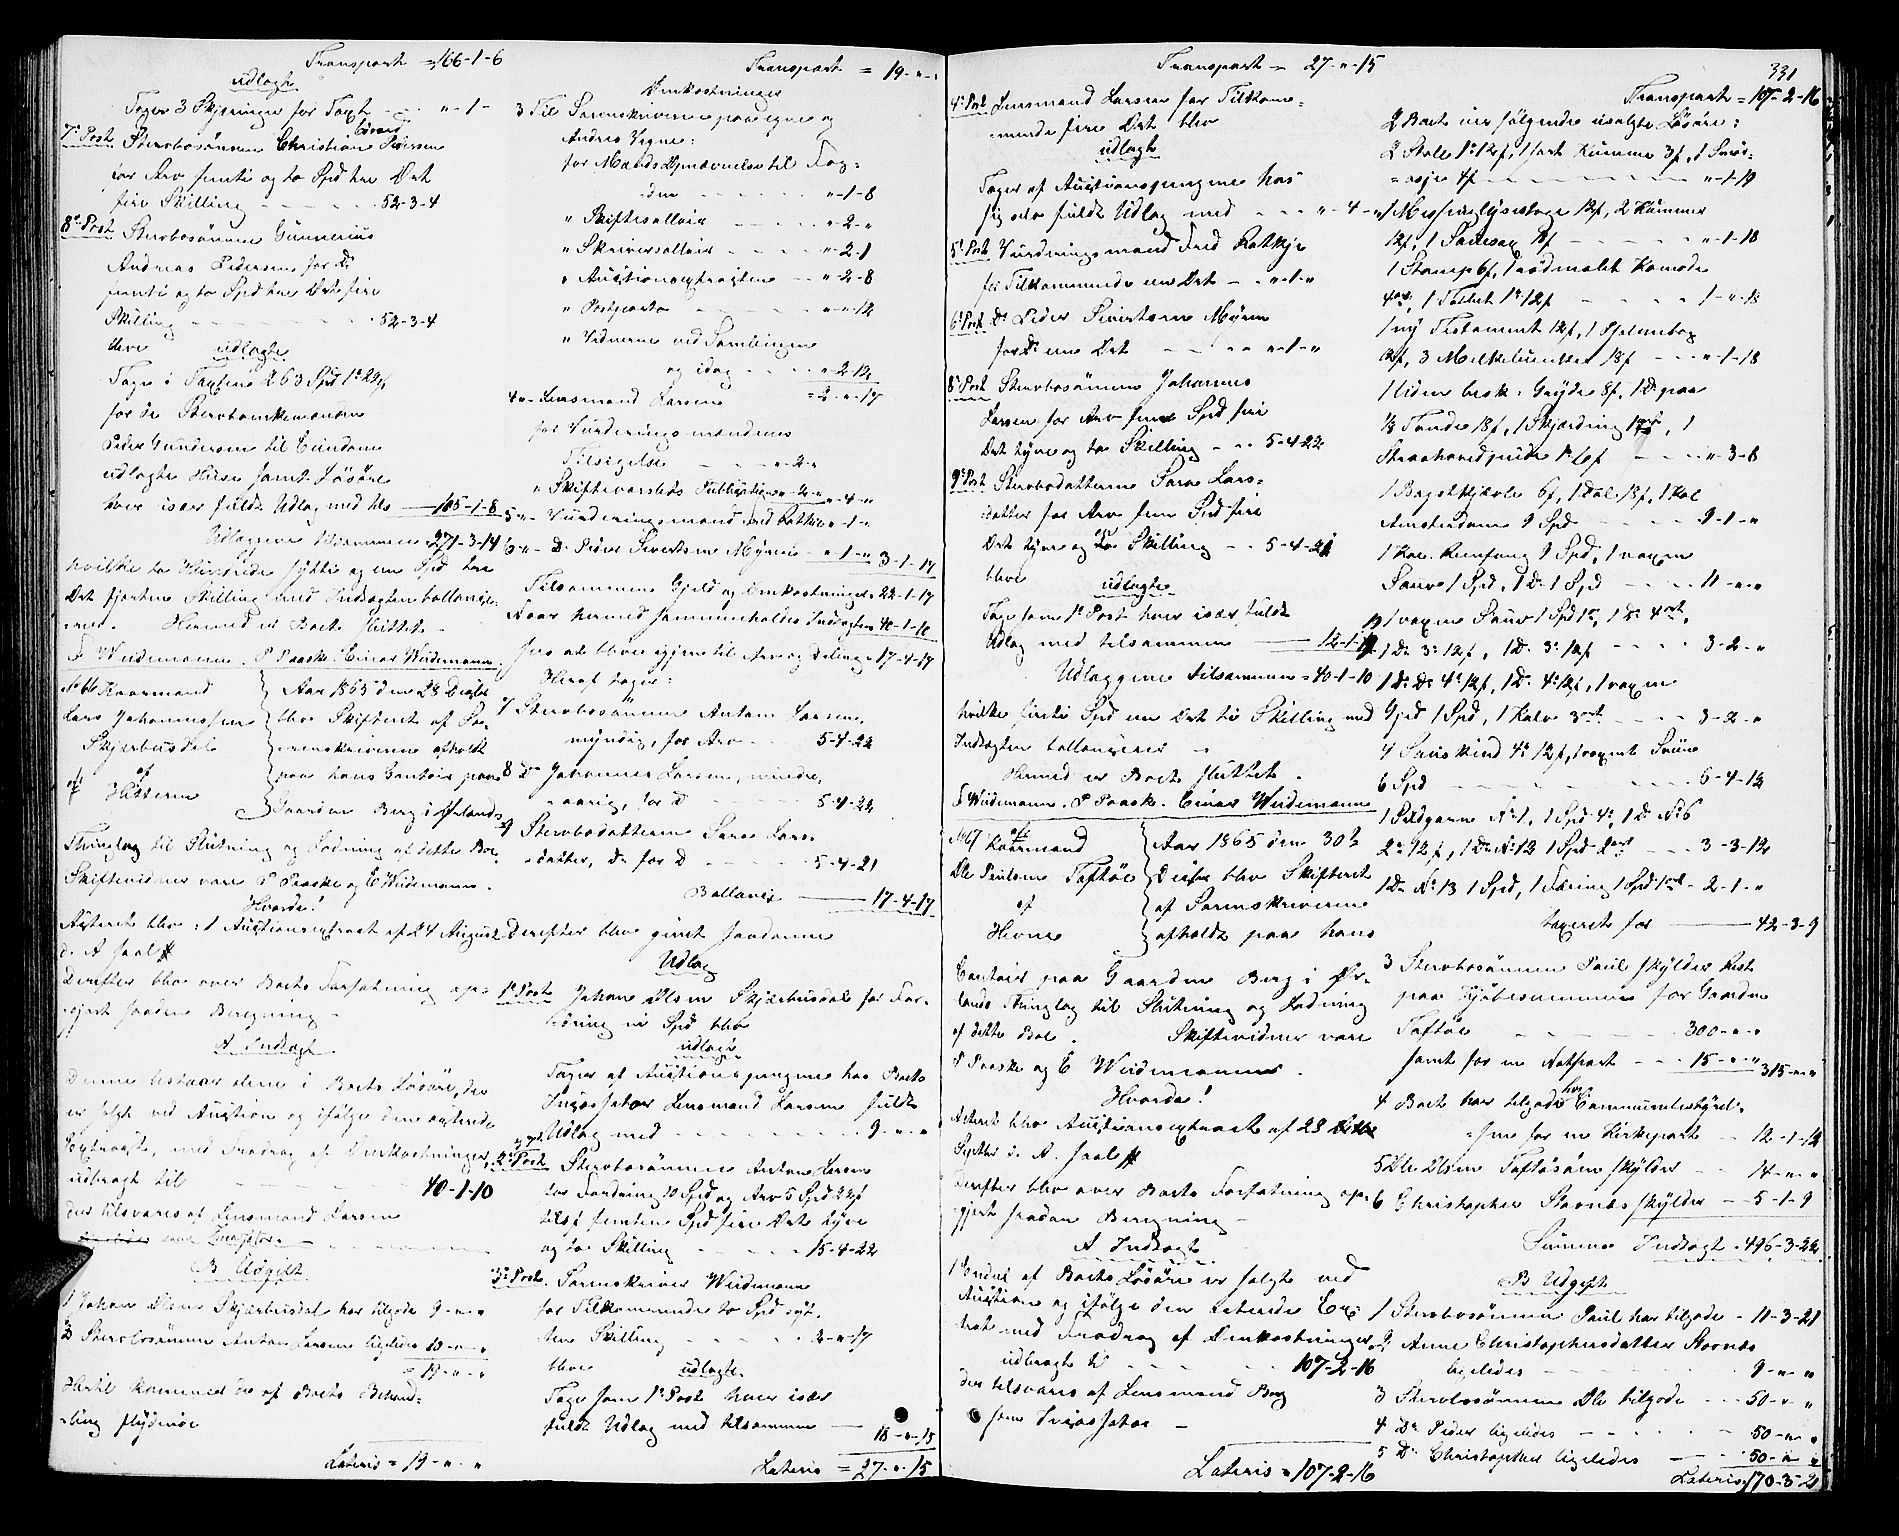 Transport = 166-1-6
udlagte
Tager 3 Skjeringer for Taxt - - - "-1-
7de Post Sterbosønnen Christian Edvard Pedersen
for Arv femti og to Spd tre Ort
fire Skilling - - - - - 52-3-4
8de Post Sterbosønnen Gunnerius
Andreas Pedersen for Do
femti og to Spd tre Ort fire
Skilling - - - - - 52-3-4
bleve udlagte
Tage i Taxten 263 Spd
for de Sterboenkemanden
Peder Gundersen til Eiendom
udlagte Huse samt Løsøre
hver især fuldt Udlag med tils. 105-1-8
Udlæggene tilsammen 271-3-14
hvilke to Hundrede sytti og en Spd tre
Ort fjorten Skilling med Indtægten ballance-
rer. Hermed er Boets sluttet.
F Weidemann. P Paaske. Einar Weidemann
No 66 Kaarmand
Lars Johannessen
Skjærbusdal
af
Hitteren
Aar 1865 den 28 Decbr
blev Skifteret af So-
renskriveren afholdt
paa hans Contoir paa
Gaarden Berg i Ørlands
Thinglag til Slutning og Lodning af dette Bo.
Skiftevidner vare P Paaske og E Weidemann.
Hvorda!
Acteret blev: 1 Auctionsextract af 24 August
d. A saal.
Derefter blev over Boets Forfatning op-
gjort saadan Beregning
A Indtægt
Denne bestaar alene i Boets Løsøre, der
er solgt ved Auction og ifølge den acterede
Extract, med Fradrag af Omkostninger,
udbragt til - - - 40-1-10
der tilsvares af Lensmand Larsen
B Udgift
1 Johan Olsen Skjærbusdal har tilgode 9-"-"
2 Sterbosønnen Anton Larsen ligeledes 10-"-"
= 19-"-"
Hertil kommer de af Boets Behand-
ling flydende
Lateris = 19-"-"
Transport = 19-"-"
Omkostninger
3 Til Sorenskriveren paa egne og
Andres Vegne:
for Mands Opnævnelse til Tax-
ten - - - - "-1-8
" Skiftesallair - - - - "-2-"
" Skriversallair - - - "-2-1
" Auctionsextracten - - "-2-8
" Postporto - - - - "-"-12
" Vidnerne ved Samlingen
og idag - - - "-2-12
= 2-"-17
4 "- Lensmand Larsen
for Vurderingsmændenes
Tilsigelse - - - "-2-"
" Skiftevarslets Publication "-2-" "-4-"
5 "- Vurderingsmand Fred Ratkje "-1-"
6 "- Do Peder Sivertsen Myren - "-1-" 3-1-17
Tilsammen Gjeld og Omkostninger 22-1-17
Naar hermed sammenholdes Indtægten 40-1-10
sees at blive igjen til Arv og Deling 17-4-17
Heraf tager:
7 Sterbosønnen Anton Larsen,
myndig, for Arv - - 5-4-22
8 Do Johannes Larsen, mindre-
aarig, for D - - - - 5-4-22
9 Sterbodatteren Sara Lars-
datter, Do for D - - - - 5-4-21
Ballance 17-4-17
Derefter blev gjort saadanne
Udlag
1ste Post Johan Olsen Skjærbusdal for For-
dring ni Spd blev
udlagt
Tager af Auctionspengene hos Boets
Incassator Lensmand Larsen fuldt
Udlag med - - - - 9-"-"
2 og 7de Post Sterbosønnen Anton Larsen
for Fordring 10 Spd og Arv 5 Spd
tils. femten Spd fire Ort tyve
og to Skilling - - - - 15-4-22
3de Post. Sorenskriver Weidemann
for Tilkommende to Spd syt-
ten Skilling - - - - 2-"-17
bleve udlagte
Tage som 1ste Post hver især
fuldt Udlag med tilsammen - 18-"-15
Lateris = 27-"-15
Transport = 27-"-15
4de Post Lensmand Larsen for Tilkom-
mende fire Ort blev
udlagt
Tager af Auctionspengene hos
sig selv fuldt Udlag med - - - "-4-"
5te Post Vurderingsmand Fred Ratkje
for Tilkommende een Ort - - "-1-"
6te Post Do Peder Sivertsen Myren
for Do een Ort - - - - "-1-"
8de Post Sterbosønnen Johannes
Larsen for Arv fem Spd fire
Ort tyve og to Skilling - - - 5-4-22
9de Post Sterbodatteren Sara Lars-
datter for Arv fem Spd fire
Ort tyve og een Skilling - - 5-4-21
bleve udlagte
Tage som 1ste Post hver især fuldt
Udlag med tilsammen
Udlæggene tilsammen = 40-1-10
hvilke firti Spd een Ort ti Skilling med
Indtægten ballancerer.
Hermed er Boets sluttet.
F Weidemann. P Paaske. Einar Weidemann
No 67 Kaarmand
Ole Paulsen Taftøe
af
Hevne
Aar 1865 den 30te
Decbr blev Skifteret
af Sorenskriveren
afholdt paa hans
Contoir paa Gaarden Berg i Ør-
lands Thinglag til Slutning og Lodning
af dette Boe. Skiftevidner vare
P Paaske og E Weidemann.
Hvorda!
Acteret blev Auctionsextract af 28
Septbr d. A. saal.
Derefter blev over Boets Forfatning op-
gjort saadan Beregning
A Indtægt
1 Endel af Boets Løsøre er solgt ved
Auction og ifølge den acterede Ex-
tract med Fradrag af Omkostninger
udbragt til - - - - 107-2-16
der tilsvares af Lensmand Berg
som Incassator
Lateris = 107-2-16
331
Transport = 107-2-16
2 Boets eier følgende usolgte Løsøre:
2 Stole 1 12ß, 1 sort Kumme 3ß, 1 Smør-
æske 4ß - - - - "-1-19
1 Messinglysestage 12ß, 2 Kummer
12ß, 1 18ß - - - - "-1-18
1 Stamp 6ß, 1 rødmalet Komode
4ort, 1 Toilet 1 12ß - - - - 1-"-18
1 ny Testament 12ß, 1 Psalmebog
3 Melkebunker 18ß - - - "-1-18
1 liden besk: Gryde 8ß, 1 Do paa
1/8 Tønde 18ß, 1 Skjærding 1ort, 1
Straahovedpude - - - "-3-8
1 Bagstkjævle 6ß, 1 18ß, 1 Koe
Amsterdam 9 Spd - - - 9-1-"
1 Koe Remfang 9 Spd, 1 voxen
Sauv 1 Spd, 1 Do 1 Spd - - - 11-"-"
1 voxen Sauv 1 Spd 1o, 1 Do 4ort,
1 Do 3o 12ß, 1 Do 3o 12ß - - - 3-2-"
1 Do Do 4o 12ß, 1 Do 4o 12ß, 1 voxen
Gjed 1 Spd, 1 Kalv 3ort - - - 3-2-"
4 Saueskind 4o 12ß, 1 voxent Sviin
6 Spd - - - - 6-4-12
1 Sildgarn No 1, 1 Spd 4o, 1 Do No 6
2o 12ß, 1 Do No 12 1 Spd 2ort - - - 3-3-12
1 Do No 13 1 Spd, 1 Færing 1 Spd 1ort - 2-1-"
taxeret for 42-3-9
3 Sterbosønnen Paul skylder Rest
paa Kjøbesummen for Gaarden
Taftøe - - - - 300-"-"
samt for en Notpart - - - 15-"-" 315-"-"
4 Boet har tilgode hos Communebestyrel-
sen for en Kirkepart - 12-1-12
5 Ole Olsen Taftøeøen skylder - - 14-"-"
6 Christopher Stavnæs skylder - - 5-1-9
Summa Indtægt 496-3-22
B Udgift
1 Sterbosønnen Paul har tilgode - 11-3-21
2 Anne Christophersdatter Stavnæs
ligeledes - - - - 9-"-"
3 Sterbosønnen Ole tilgode - - - 50-"-"
4 Do Peder ligeledes - - - - 50-"-"
5 Do Christopher ligeledes - - - 50-"-"
Lateris 170-3-21